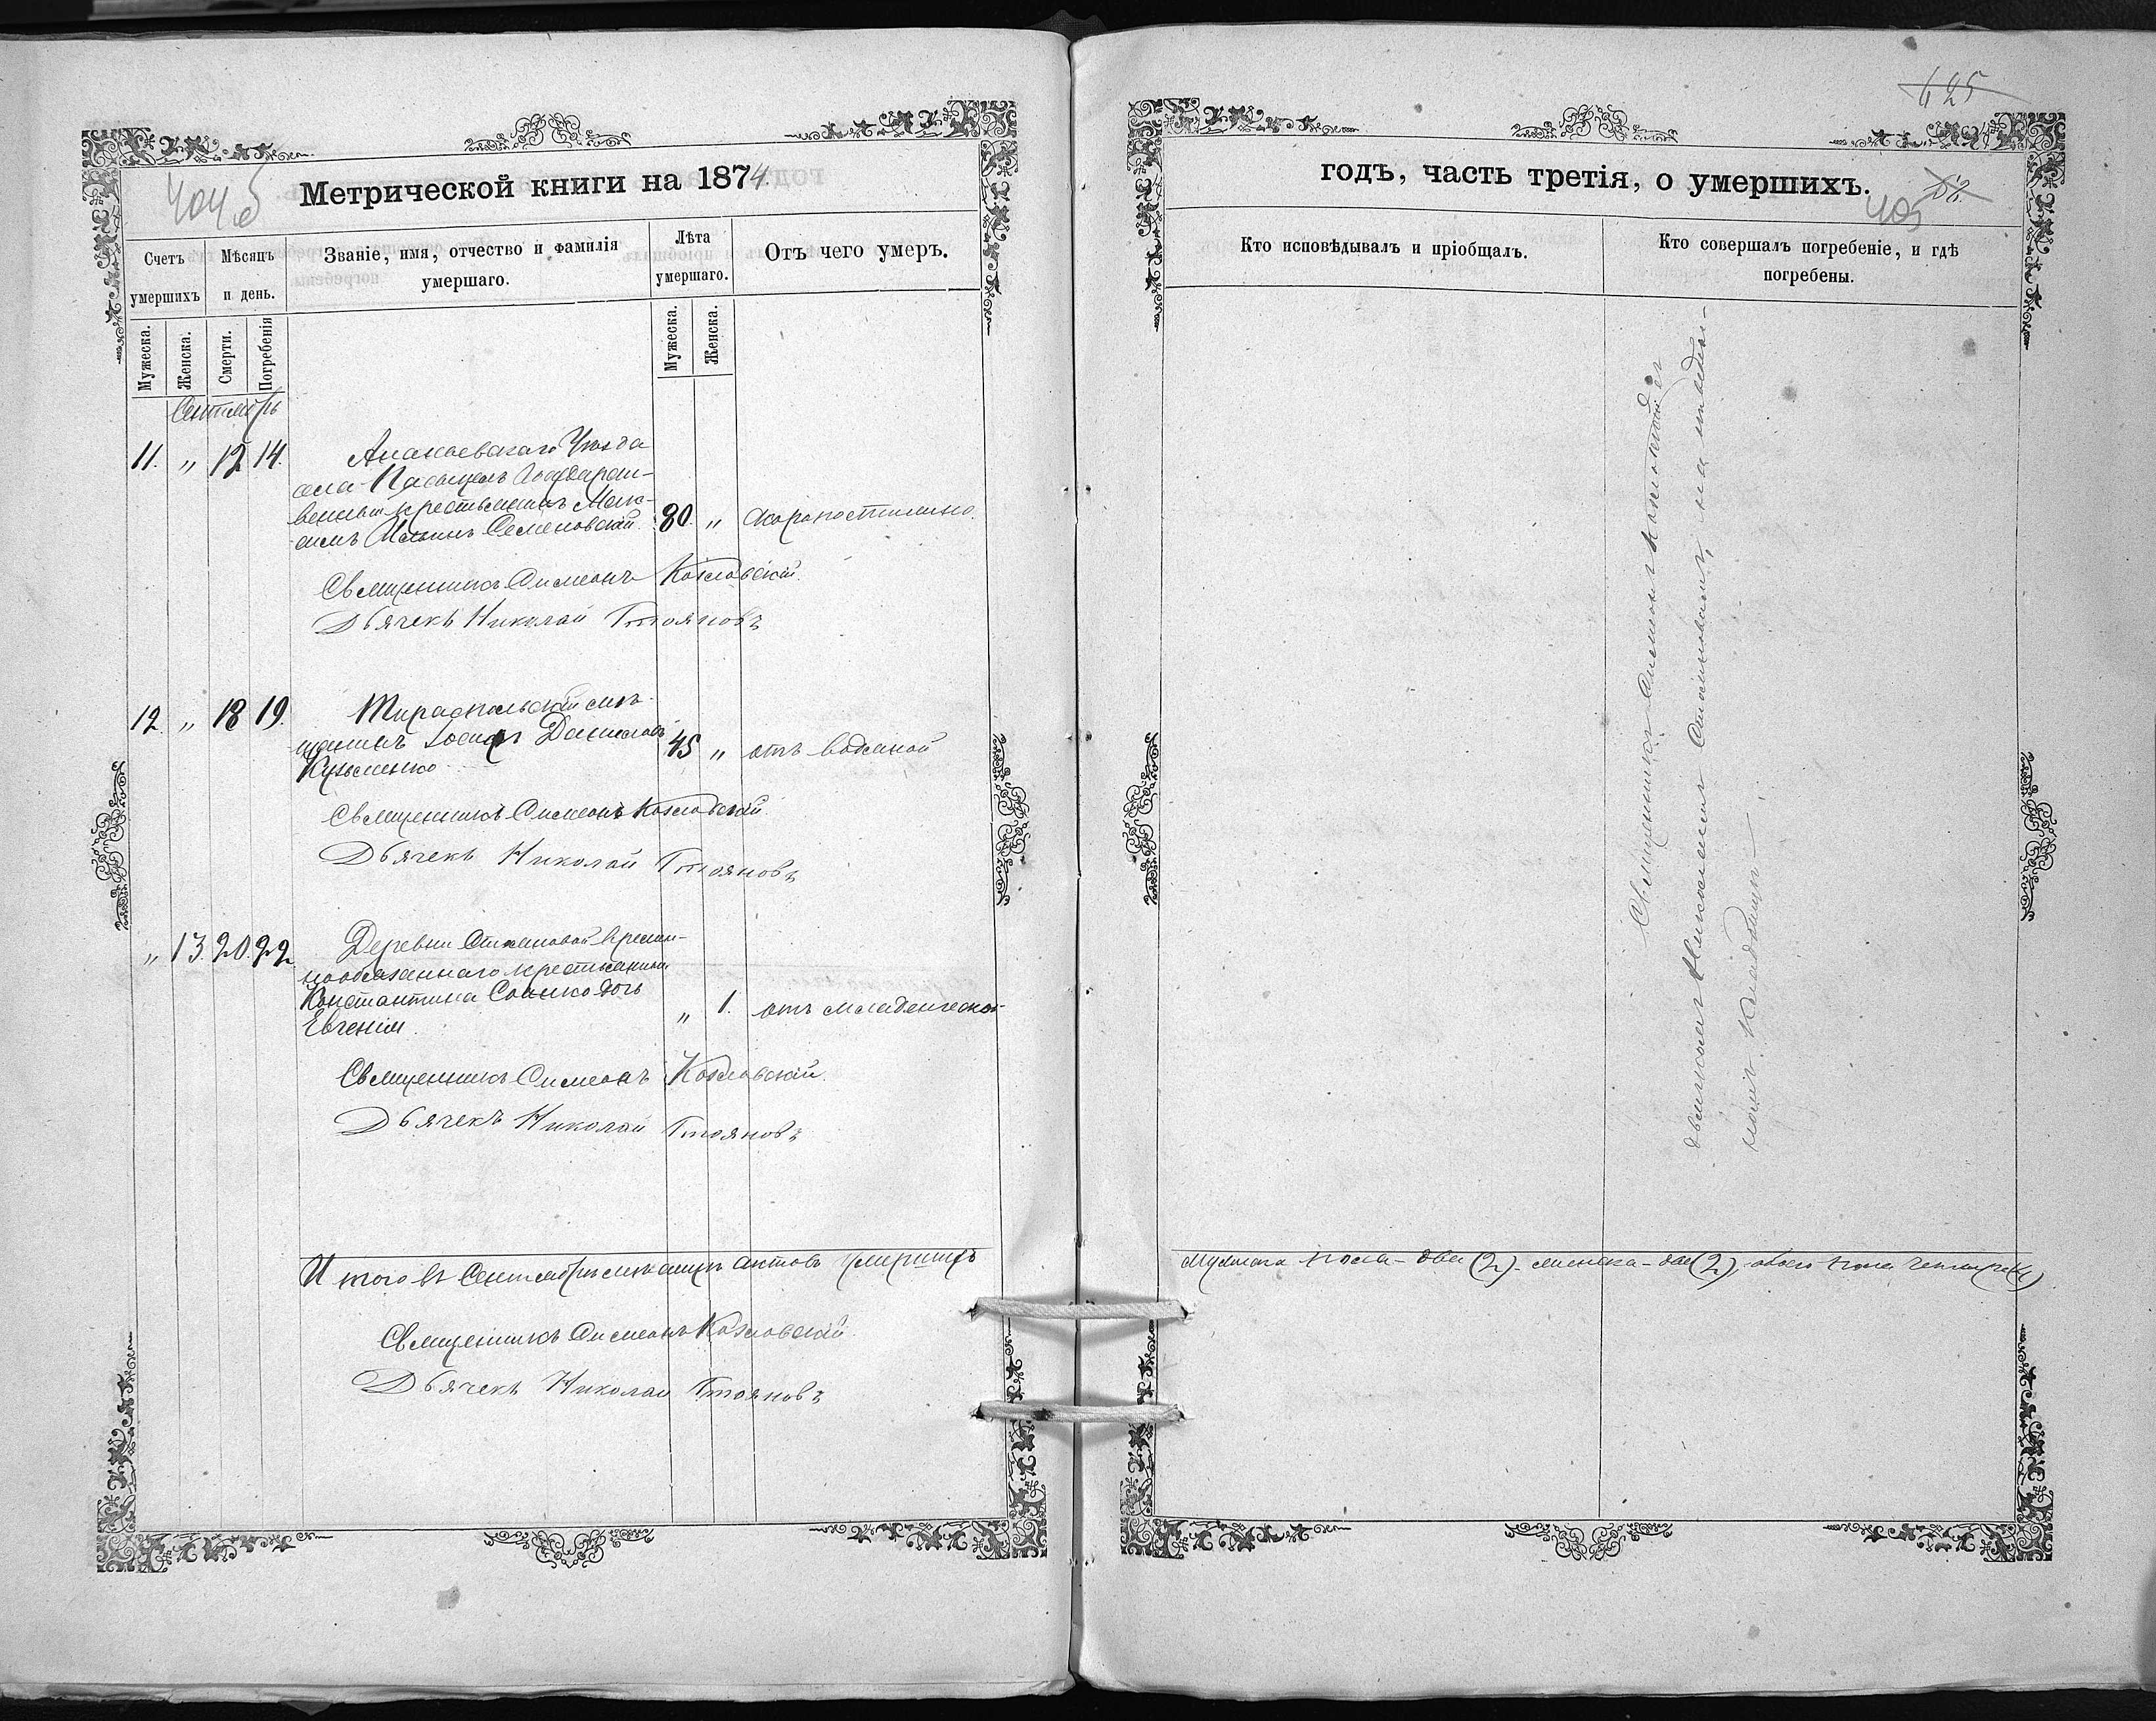 404 б
Метрической книги на 1874.
Счетъ умершихъ
Мѣсяцъ и день.
Званіе, имя, отчество и фамилія умершаго.
Лѣта умершаго.
Отъ чего умеръ.
Мужеска.
Женска.
Смерти.
Погребенія
Мужеска.
Женска.
Сентябрь
11. „ 12 14.
Ананьевскаго Уѣзда
села
крестьянинъ Мак-
симъ Семеновскій. 80. „ скоропостижно.
Священникъ Симеонъ Козловскій.
Дьячекъ Николай Стояновъ
12. „ 18 19.
Тираспольскій мѣ-
щанинъ Іосифъ Даниловъ
Кузьменко 45 „ отъ водяной
Священникъ Симеонъ Козловскій.
Дьячекъ Николай Стояновъ
„ 13. 20. 22
Деревни Степановой времен-
нообязаннаго крестьянина
Константина дочь
Евгенія. „ 1. отъ младенческой
Священникъ Симеонъ Козловскій.
Дьячекъ Николай Стояновъ
Итого въ Сентябрѣ мѣсяцѣ актовъ умершихъ
Священникъ Симеонъ Козловскій.
Дьячекъ Николай Стояновъ
425
годъ, часть третія, о умершихъ.
405
52.
Кто исповѣдывалъ и пріобщалъ.
Кто совершалъ погребеніе, и гдѣ погребены.
Священникъ Симеонъ Козловскій съ
дьячкомъ Николаемъ Стояновымъ, на приход-
скомъ кладбищѣ
Мужеска пола - два (2) - женска - два (2), обоего пола четыре (4)